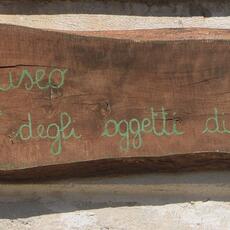 useo
degli oggetti di